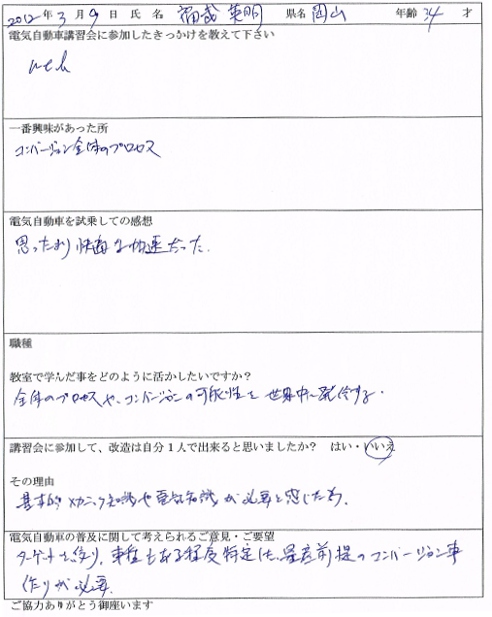 2012年3月9日 氏名 福武英明 県名 岡山 年齢 34 才
電気自動車講習会に参加したきっかけを教えて下さい
web
一番興味があった所
コンバージョン全体のプロセス
電気自動車を試乗しての感想
思ったより快適で快速だった.
職種
教室で学んだ事をどのように活かしたいですか?
全体のプロセスや、コンバージョンの可能性を世界中へ発信する.
講習会に参加して、改造は自分1人で出来ると思いましたか? はい・いいえ
その理由
基本的メカニック知識や電気知識が必要と感じた為.
電気自動車の普及に関して考えられるご意見・ご要望
ターゲットを絞り、車種もある程度特定した、量産前提のコンバージョン車
作りが必要.
ご協力ありがとう御座います